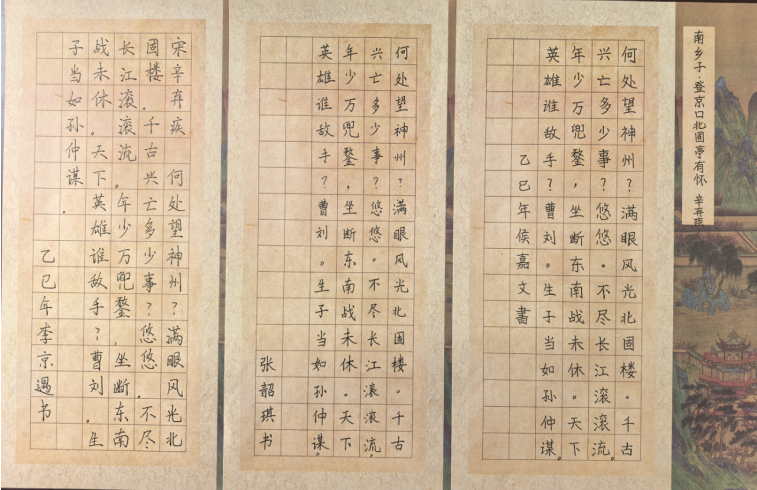 南乡子·登京口北固亭有怀 辛弃疾
何处望神州？满眼风光北固楼。千古
兴亡多少事？悠悠。不尽长江滚滚流。
年少万兜鍪，坐断东南战未休。天下
英雄谁敌手？曹刘。生子当如孙仲谋。
乙巳年侯嘉文書
何处望神州？满眼风光北固楼。千古
兴亡多少事？悠悠。不尽长江滚滚流。
年少万兜鍪，坐断东南战未休。天下
英雄谁敌手？曹刘。生子当如孙仲谋。
张韶琪书
宋辛弃疾 何处望神州？满眼风光北
固楼。千古兴亡多少事？悠悠。不尽
长江滚滚流。年少万兜鍪，坐断东南
战未休。天下英雄谁敌手？曹刘。生
子当如孙仲谋。
乙巳年李京遇书